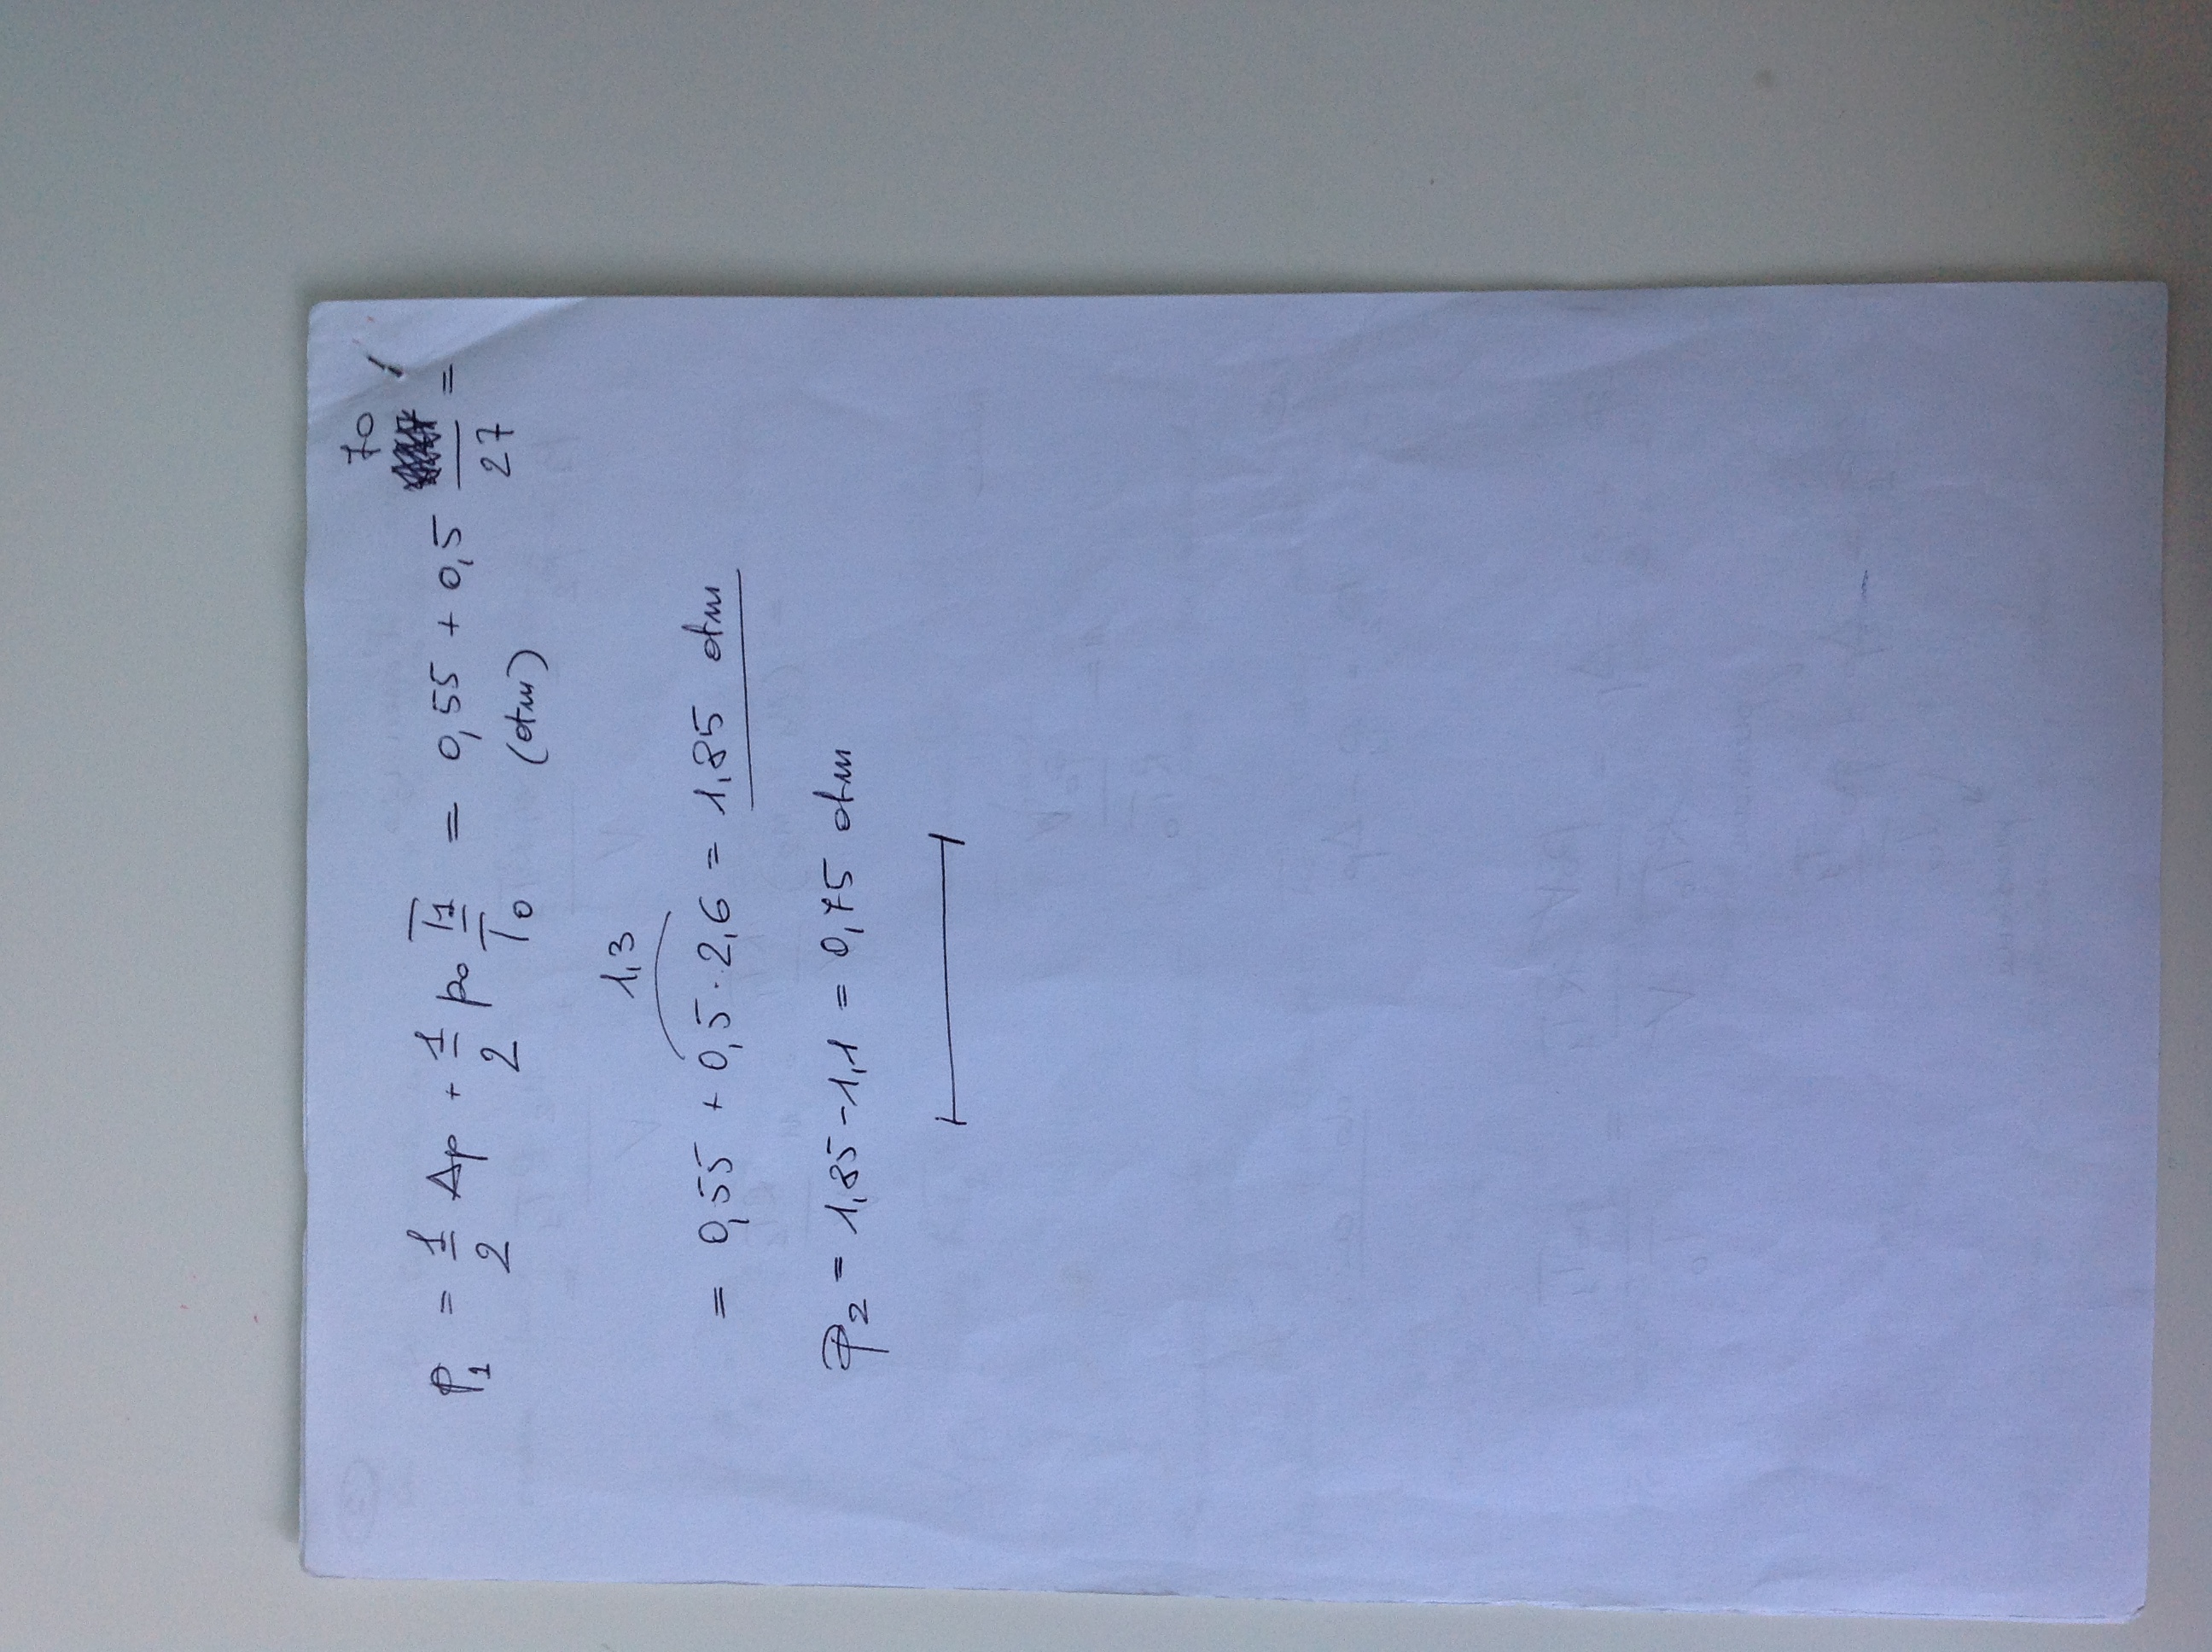 p₁ = 1/2 Δp + 1/2 p₀ T₁/T₀ = 0,55 + 0,5 70/27 =
(atm)
1,3
= 0,55 + 0,5 · 2,6 = 1,85 atm
p₂ = 1,85 - 1,1 = 0,75 atm